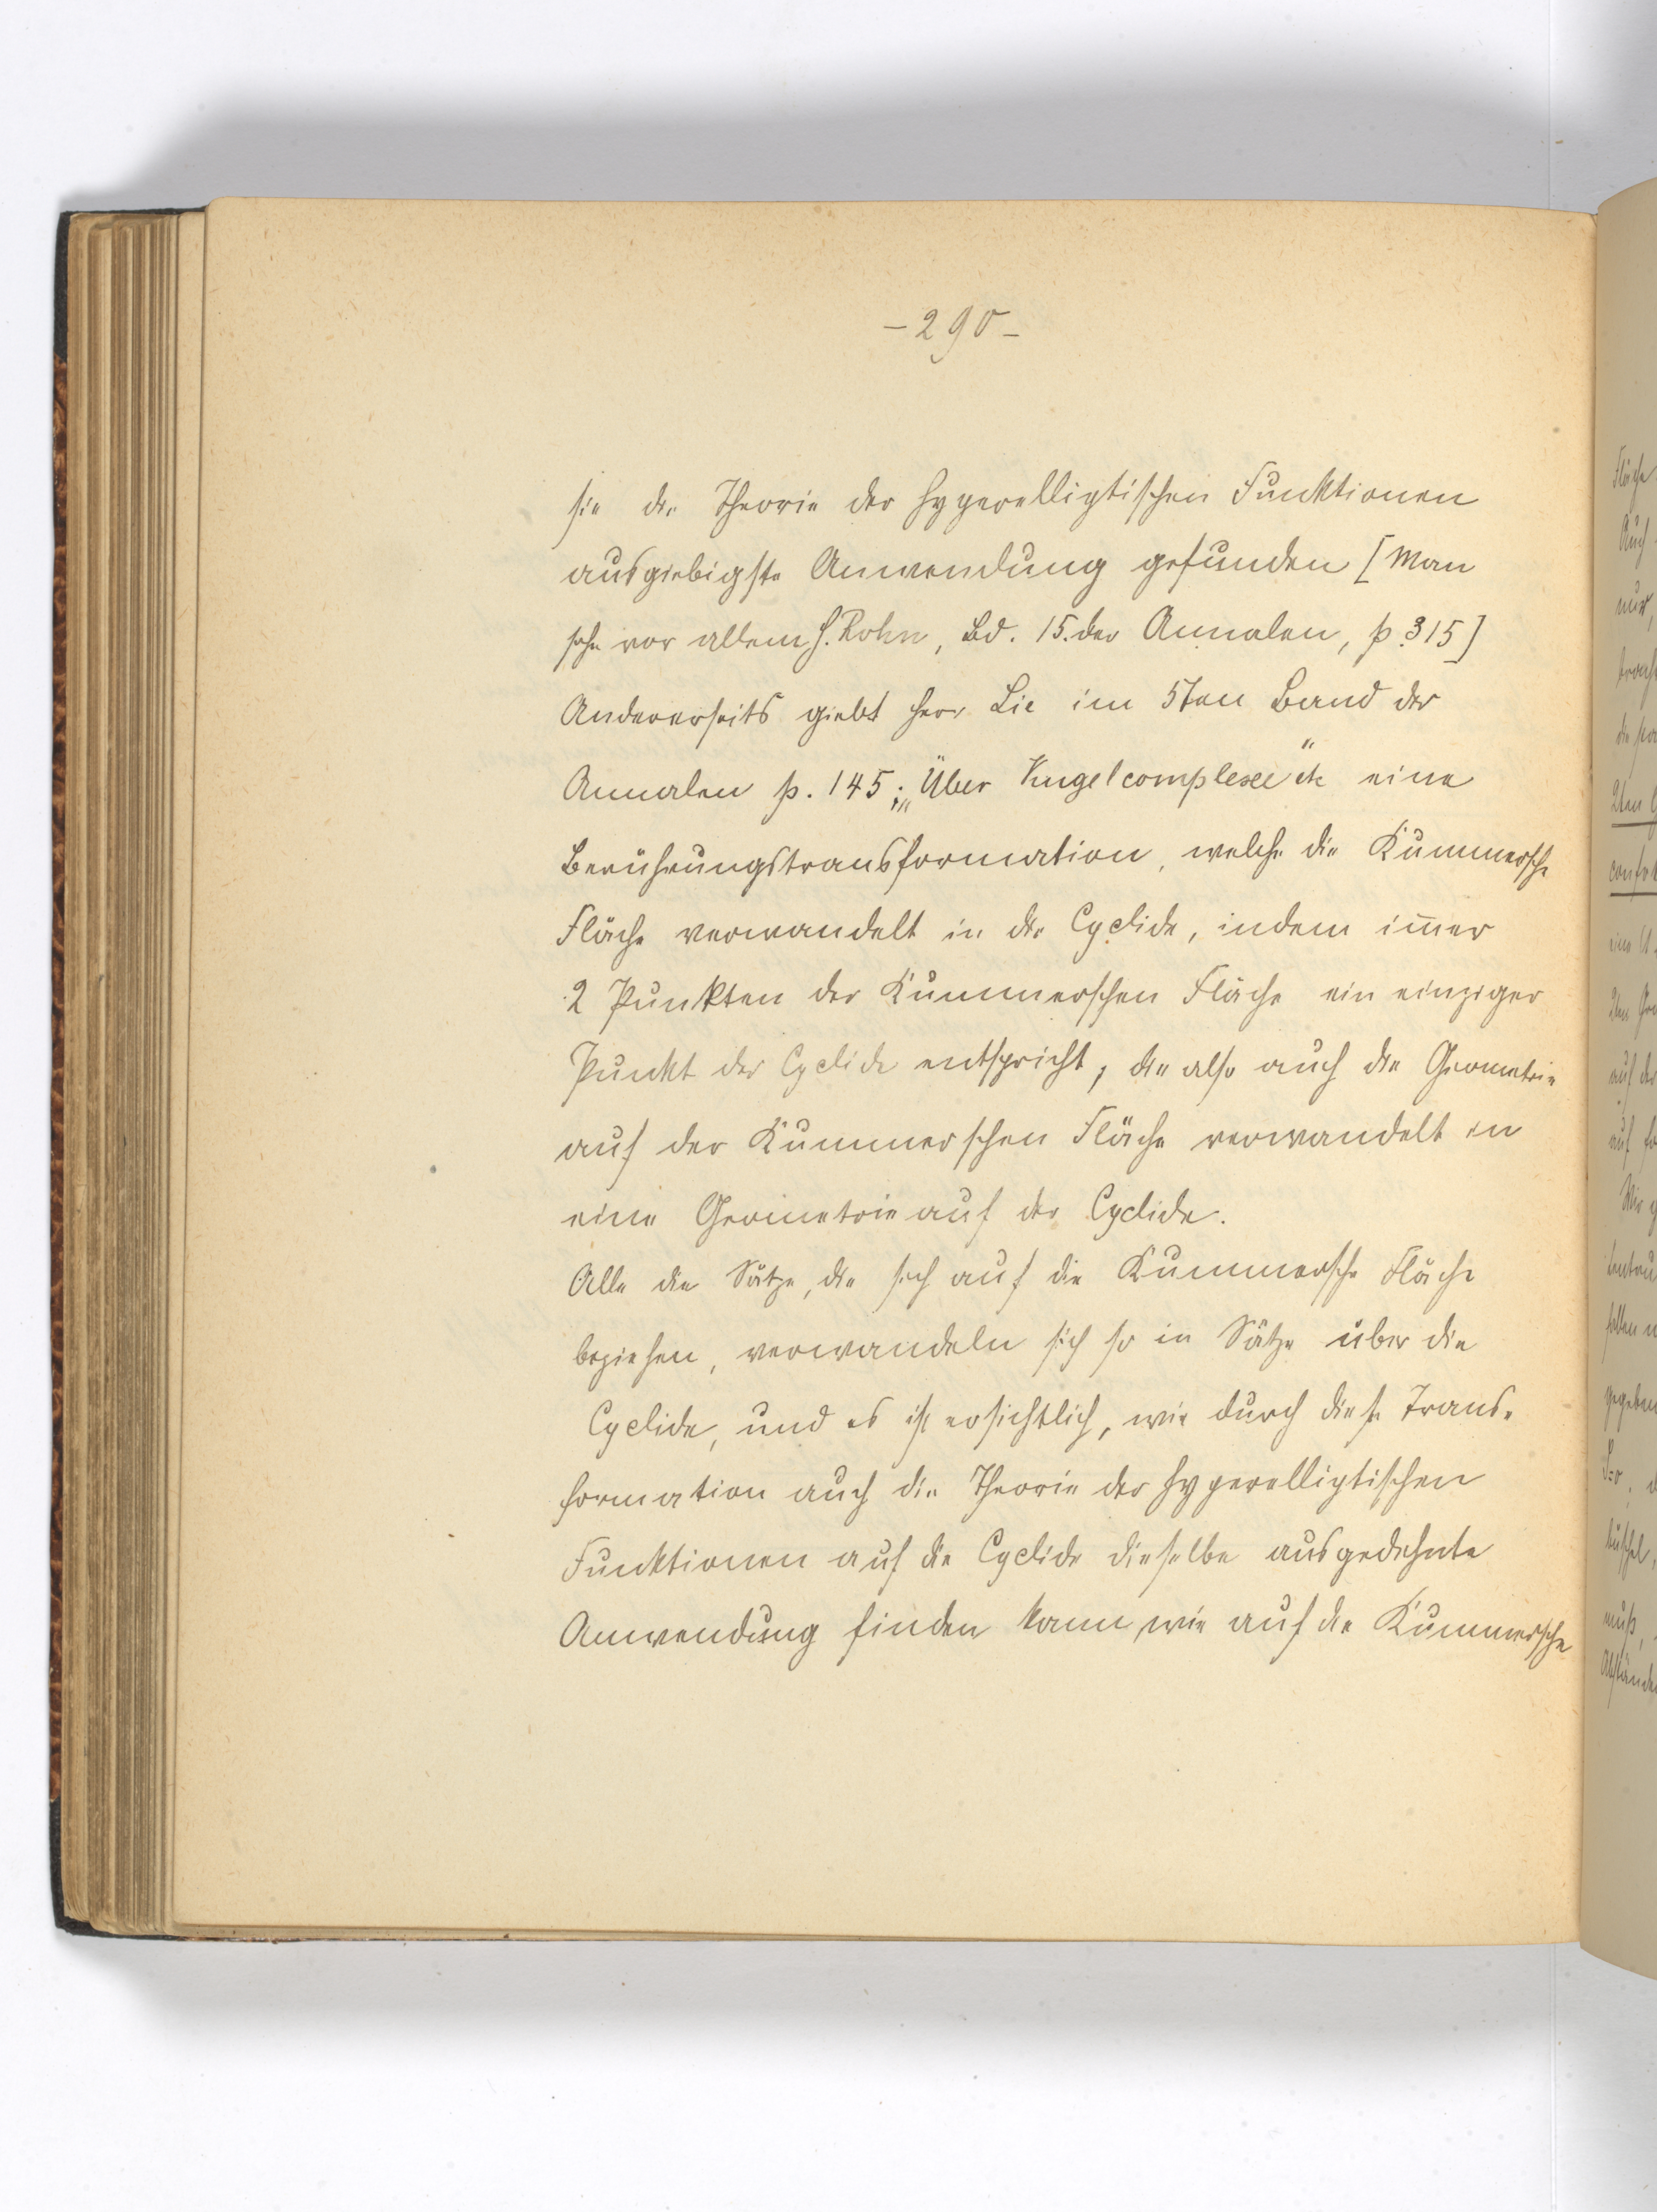 – 290 –
sie die Theorie der hyperelliptischen Funktionen
ausgiebigste Anwendung gefunden [Man
sehe vor allem H. Rohn, Bd. 15. der Annalen, p. 315]
Andererseits giebt Herr Lie im 5ten Band der
Annalen p. 145; „Über Kugelcomplexe" etc eine
Berührungstransformation, welche die Kummersche
Fläche verwandelt in die Cyclide, indem im̅er
2 Punkten der Kummerschen Fläche ein einziger
Punkt der Cyclide entspricht, die also auch die Geometrie
auf der Kummerschen Fläche verwandelt in
eine Geometrie auf der Cyclide.
Alle die Sätze, die sich auf die Kummersche Fläche
beziehen, verwandeln sich so in Sätze über die
Cyclide, und es ist ersichtlich, wie durch diese Trans-
formation auch die Theorie der hyperelliptischen
Funktionen auf die Cyclide dieselbe ausgedehnte
Anwendung finden kann, wie auf die Kummersche